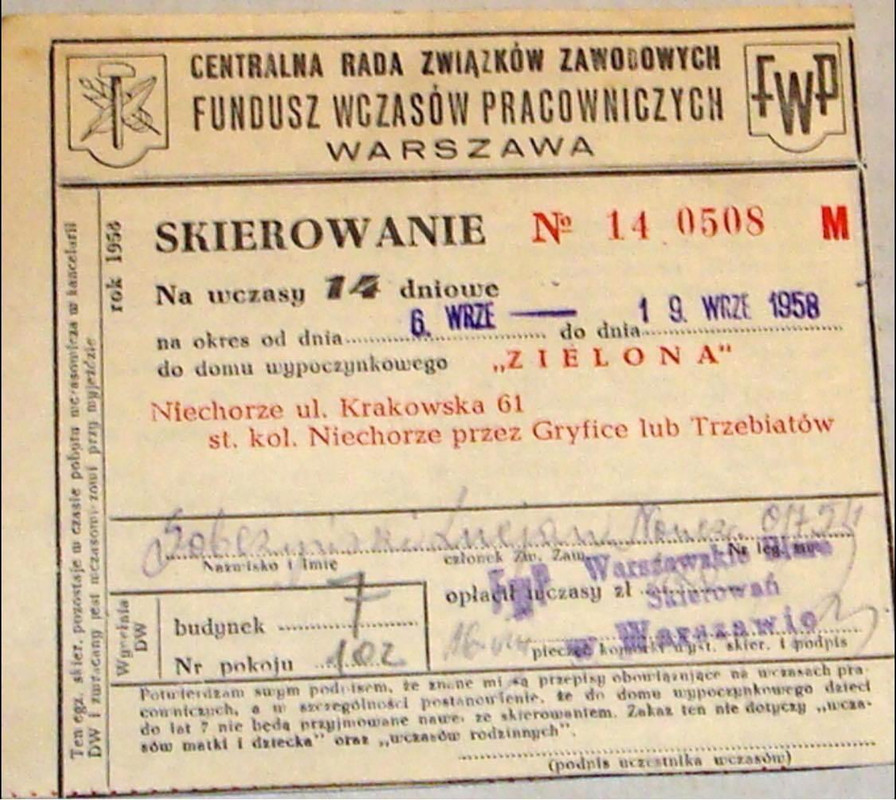 CENTRALNA RADA ZWIĄZKÓW ZAWODOWYCH
FUNDUSZ WCZASÓW PRACOWNICZYCH
WARSZAWA
FWP
SKIEROWANIE № 14 0508 M
rok 1958
Na wczasy 14 dniowe
na okres od dnia 6. WRZE — do dnia 19. WRZE 1958
do domu wypoczynkowego „ZIELONA"
Niechorze ul. Krakowska 61
st. kol. Niechorze przez Gryfice lub Trzebiatów
Nazwisko i imię
członek Zw. Zaw. Nr leg.
Warszawskie Biuro
FWP
opłacił wczasy zł
Skierowań
w Warszawie
pieczęć komórki wyst. skier. i podpis
Wypełnia
DW
budynek 7
Nr pokoju 102
Ten egz. skier. pozostaje w czasie pobytu wczasowicza w kancelarii
DW i zwracany jest wczasowiczowi przy wyjeździe
Potwierdzam swym podpisem, że znane mi są przepisy obowiązujące na wczasach pra-
cowniczych, a w szczególności postanowienie, że do domu wypoczynkowego dzieci
do lat 7 nie będą przyjmowane nawet ze skierowaniem. Zakaz ten nie dotyczy „wcza-
sów matki i dziecka" oraz „wczasów rodzinnych".
(podpis uczestnika wczasów)